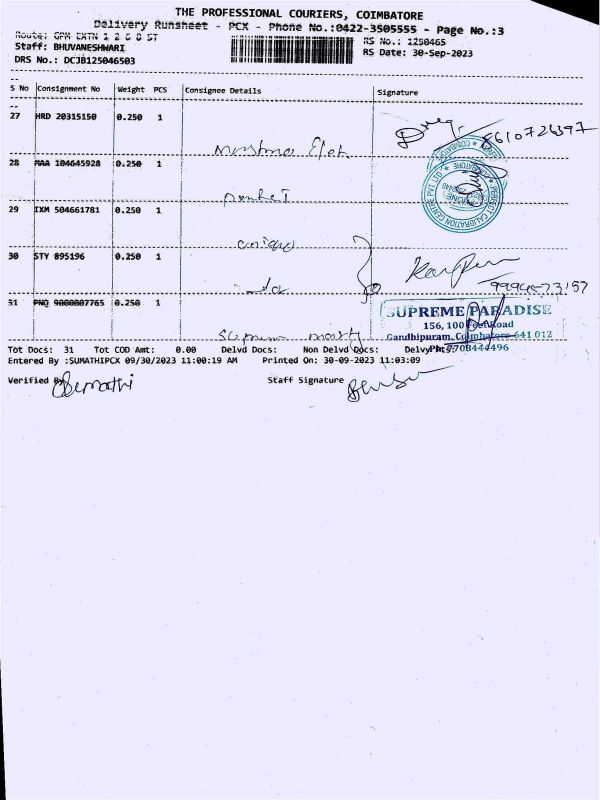 THE PROFESSIONAL COURIERS, COIMBATORE
Delivery Runsheet - PCX - Phone No.:0422-3505555 - Page No.:3
Route: GPM EXTN 1 2 6 8 ST
RS No.: 1250465
Staff: BHUVANESHWARI
RS Date: 30-Sep-2023
DRS No.: DCJB125046503
S No Consignment No Weight PCS Consignee Details Signature
27 HRD 20315150 0.250 1
8610726397
28 MAA 104645928 0.250 1
PERFECT CALIBRATION CENTRE PVT LTD * COIMBATORE *
29 IXM 504661781 0.250 1
30 STY 895196 0.250 1
31 PNQ 9000007765 0.250 1
SUPREME PARADISE
156, 100 Feet Road
Gandhipuram, Coimbatore-641 012
Ph: 7708444496
Tot Docs: 31 Tot COD Amt: 0.00 Delvd Docs: Non Delvd Docs:
Entered By :SUMATHIPCX 09/30/2023 11:00:19 AM Printed On: 30-09-2023 11:03:09
Verified By Sumathi Staff Signature